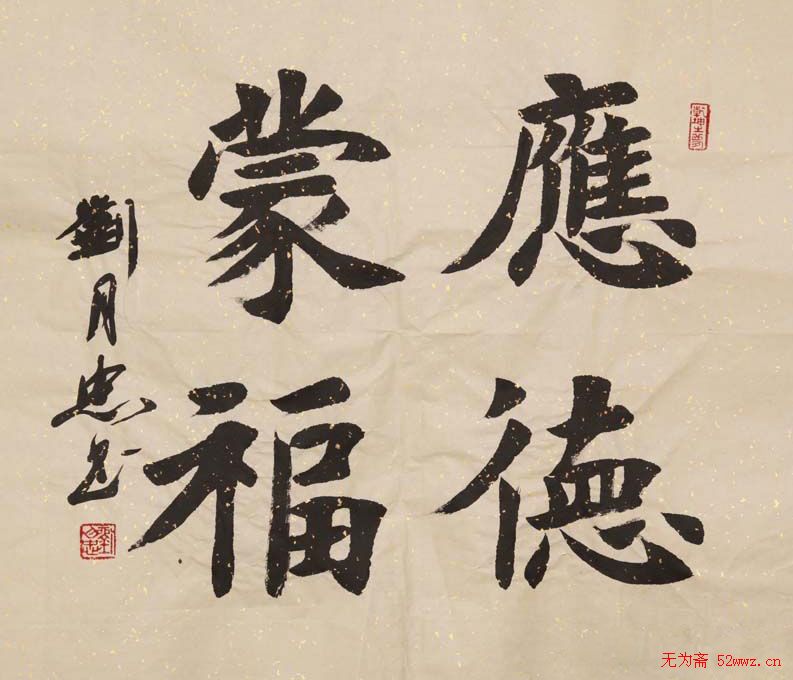 應德
蒙福
劉月忠书
无为斋 52wwz.cn